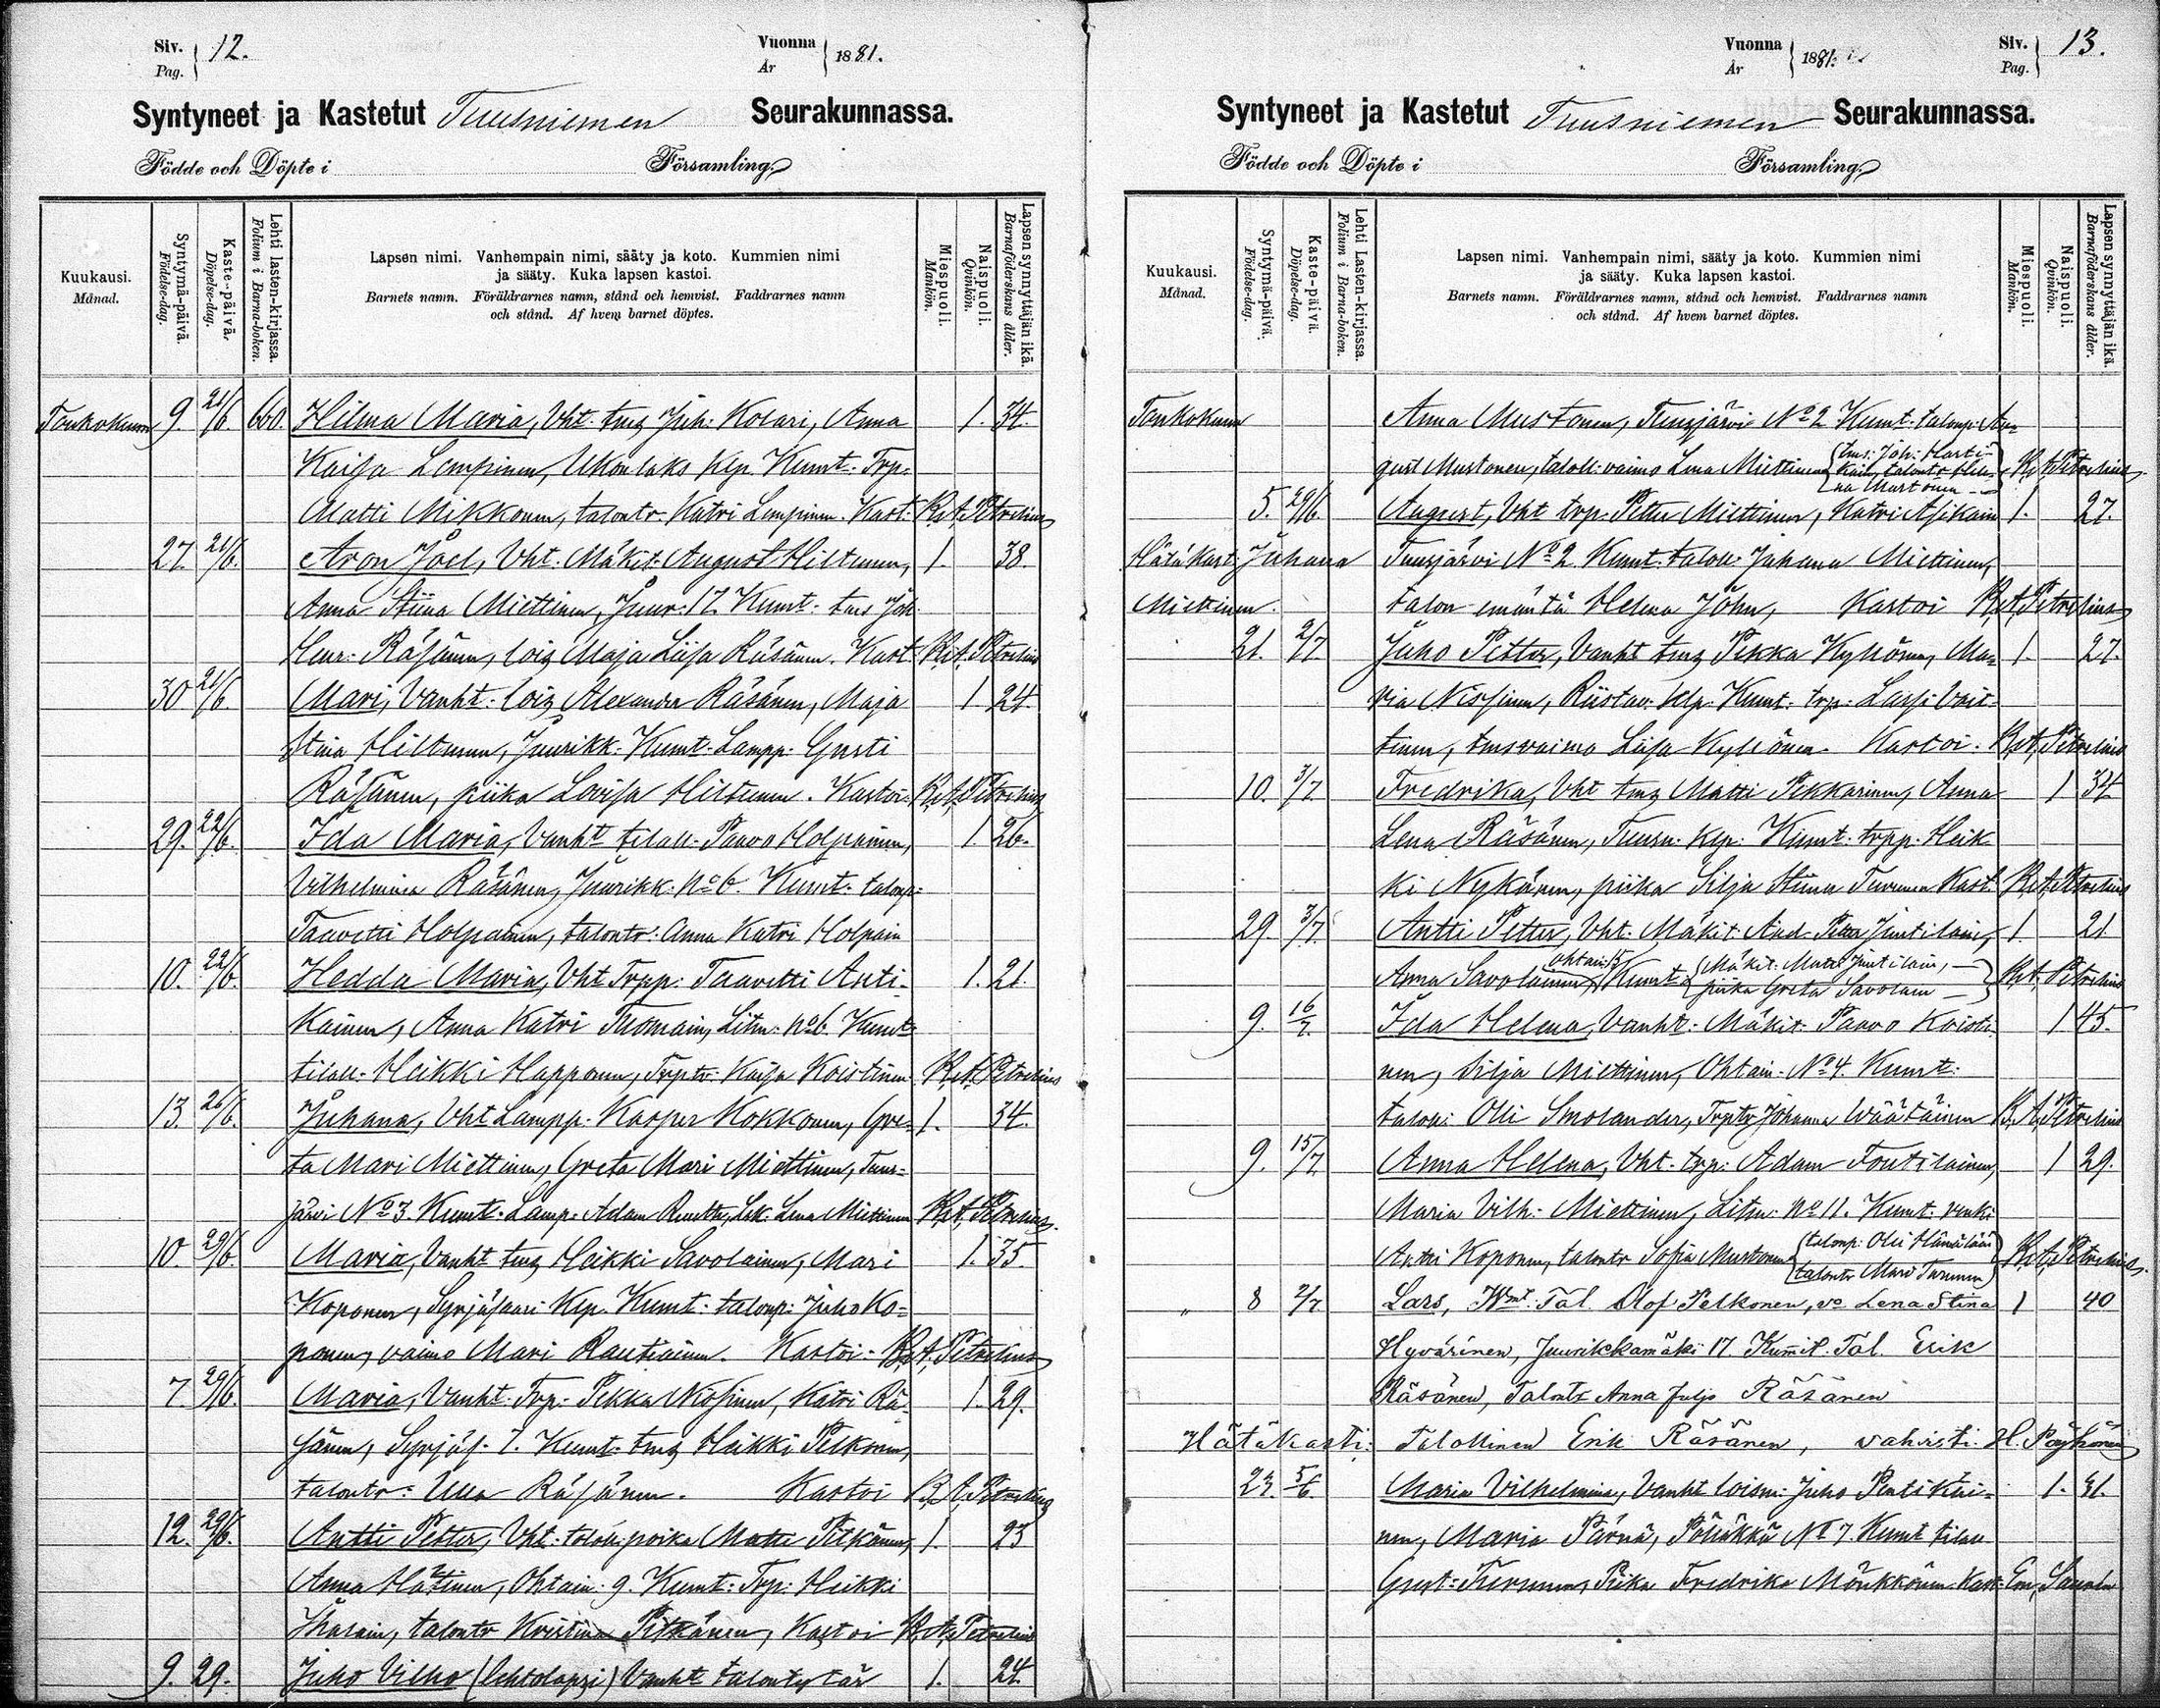 Siv. Pag. 12. Vuonna År 1881.
Syntyneet ja Kastetut Tuusniemen Seurakunnassa.
Födde och Döpte i Församling.
Kuukausi. Månad. Syntymä-päivä. Födelse-dag. Kaste-päivä. Döpelse-dag. Lehti lasten-kirjassa. Folium i Barna-boken. Lapsen nimi. Vanhempain nimi, sääty ja koto. Kummien nimi ja sääty. Kuka lapsen kastoi. Barnets namn. Föräldrarnes namn, stånd och hemvist. Faddrarnes namn och stånd. Af hvem barnet döptes. Miespuoli. Mankön. Naispuoli. Qvinkön. Lapsen synnyttäjän ikä. Barnaföderskans ålder.
Toukokuun 9. 21/6. 600. Hilma Maria, Vht. tmz Juh: Kolari, Anna 1. 34.
Kaisa Lempinen, Ukonlaks klp. Kumt. Trp:
Matti Mikkonen, talontr. Katri Lempinen. Kast: R. A. Petrelius
27. 21/6. Aron Joel, Vht. Mäkit: August Hiltunen, 1. 38.
Anna Stiina Miettinen, Juur: 17 Kumt. tms Joh
Henr: Räsänen, loiz Maja Liisa Räsänen. Kast: R. A. Petrelius
30 21/6. Mari, Vanht. loiz Alexander Räsänen, Maja 1. 24.
Stina Hiltunen, Juurikk. Kumt. Lampp. Gusti
Räsänen, piika Lovisa Hiltunen. Kastoi: R. A. Petrelius
29. 22/6. Ida Maria, Vanht tilall. Paavo Holpainen, 1. 26.
Vilhelmiina Räsänen, Juurikk. No 6. Kumt. talonp.
Taavetti Holpainen, talontr: Anna Katri Holpain
10. 22/6. Hedda Maria, Vht Trpp: Taavetti Anti- 1. 21.
kainen, Anna Katri Tuomain, Litm. No 6. Kumt:
tilall. Heikki Happonen, Trptr: Kaisa Koistinen R. A. Petrelius
13. 26/6. Juhana, Vht Lampp. Kasper Kokkonen, Gre- 1. 34.
ta Mari Miettinen, Greta Mari Miettinen, Tuus-
järvi No 3. Kumt. Lamp. Adam Lsk. Lena Miettinen R. A. Petrelius.
10. 29/6. Maria, Vanht tmz Heikki Savolainen, Mari 1. 35.
Koponen, Syrjäsaari Klp. Kumt. talonp. Juho Ko-
ponen, vaimo Mari Rautiainen. Kastoi. R. A. Petrelius
7. 29/6. Maria, Vanht. Trp. Pekka Nissinen, Katri Rä- 1. 29.
sänen, Syrjäs. 7. Kumt. tmz Heikki Pelkonen,
talontr: Ulla Räsänen. Kastoi R. A. Petrelius
12. 29/6. Antti Petter, Vht: talollpoika Matti Pitkänen, 1. 23
Anna Hätinen, Ohtain: 9. Kumt: Trp: Heikki
talontr Kristina Pitkänen, Kastoi R. A. Petrelius
9. 29. Juho Vilho (lehtolapsi) Vanht talontytär 1. 24.
Vuonna År 1881. Siv. Pag. 13.
Syntyneet ja Kastetut Tuusniemen Seurakunnassa.
Födde och Döpte i Församling.
Kuukausi. Månad. Syntymä-päivä. Födelse-dag. Kaste-päivä. Döpelse-dag. Lehti Lasten-kirjassa. Folium i Barna-boken. Lapsen nimi. Vanhempain nimi, sääty ja koto. Kummien nimi ja sääty. Kuka lapsen kastoi. Barnets namn. Föräldrarnes namn, stånd och hemvist. Faddrarnes namn och stånd. Af hvem barnet döptes. Miespuoli. Mankön. Naispuoli. Qvinkön. Lapsen synnyttäjän ikä. Barnaföderskans ålder.
Toukokuun Anna Mustonen, Tuusjärvi No 2 Kumt. talonp: Au-
gust Mustonen, taloll. vaimo Lena Miettinen (tms: Joh: Harti- kain, talontr Hele- na Mustonen) R. A. Petrelius
5. 29/6. August, Vht trp. Petter Miettinen, Katri Asikain 1. 27.
Hätäkast: Juhana Tuusjärvi No 2. Kumt. talol. Juhana Miettinen,
Miettinen. talon emäntä Helena John, Kastoi R. A. Petrelius
21. 2/7 Juho Petter, Vanht tmz Pekka Kyllönen, Ma- 1. 27.
ria Nissinen, Riistav. klp. Kumt. trp: Lassi Voit-
tinen, tmsvaimo Liisa Kyllönen. Kastoi. R. A. Petrelius
10. 3/7. Fredrika, Vht tmz Matti Pekkarinen, Anna 1 34
Lena Räsänen, Tuusn. klp. Kumt. trpp. Heik-
ki Nykänen, piika Silja Stiina Turunen Kast: R. A. Petrelius
29. 3/7 Antti Petter, Vht. Mäkit. And. Petter Juutilain, 1. 21
Anna Savolainen, ohtain: 5 Kumt. (Mäkit: Matti Juutilain, piika Greta Savolain) R. A. Petrelius
9. 16/7. Ida Helena, Vanht: Mäkit. Paavo Koisti- 1. 45.
nen, Silja Miettinen, Ohtain. No 4. Kumt.
talol: Olli Smolander, Trptr Johanna Wäätäinen R. A. Petrelius
9. 15/7. Anna Helena, Vht. trp: Adam Toutilainen, 1 29.
Maria Vilh. Miettinen, Litm: No 11. Kumt. renki
Antti Koponen, talontr Sofia Mustonen (talonp: Olli Hämäläin talontr Mari Turunen) R. A. Petrelius.
" 8 2/7 Lars, Wmt. Tal Olof Pelkonen, vo Lena Stina 1 40
Hyvärinen, Juurikkamäki 17. Kumit. Tal. Erik
Räsänen, Talontr Anna Julja Räsänen
Hätäkasti: Talollinen Erik Räsänen, vahvisti H. Pöyhönen
23. 5/6. Maria Vilhelmina, Vanht loism. Juho Pentikäi- 1. 31.
nen, Maria Pärnä, Pölläkkä No 7. Kumt tilall
Gust: Turunen, Piika Fredrika Mönkkönen. Kast: Em.